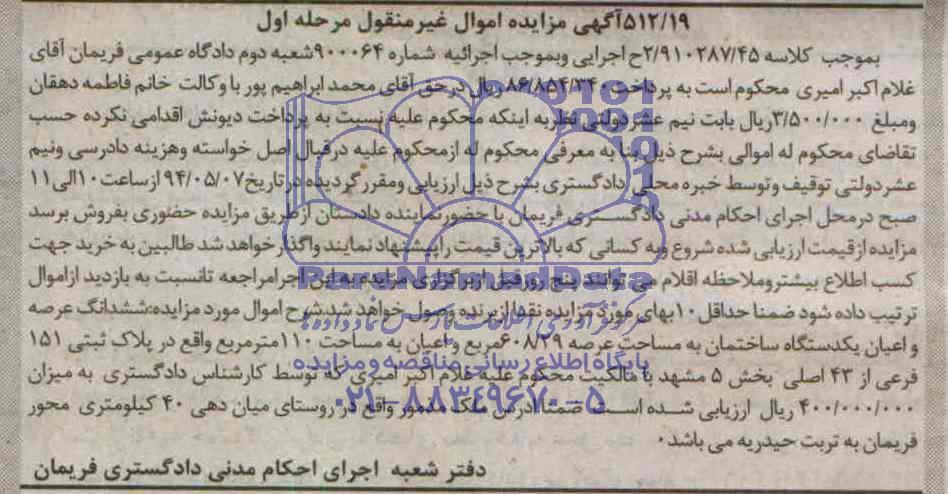 ۵۱۲/۱۹آگهی مزایده اموال غیرمنقول مرحله اول
بموجب کلاسه ۲/۹۱۰۲۸۷/۴۵ح اجرایی وبموجب اجرائیه شماره ۹۰۰۰۶۴شعبه دوم دادگاه عمومی فریمان آقای
غلام اکبر امیری محکوم است به پرداخت ۸۶/۸۵۴/۳۴۰ریال درحق آقای محمد ابراهیم پور با وکالت خانم فاطمه دهقان
ومبلغ ۳/۵۰۰/۰۰۰ریال بابت نیم عشردولتی نظربه اینکه محکوم علیه نسبت به پرداخت دیونش اقدامی نکرده حسب
تقاضای محکوم له اموالی بشرح ذیل بنا به معرفی محکوم له ازمحکوم علیه درقبال اصل خواسته وهزینه دادرسی ونیم
عشردولتی توقیف وتوسط خبره محلی دادگستری بشرح ذیل ارزیابی ومقررگردیده درتاریخ۹۴/۰۵/۰۷ ازساعت۱۰الی۱۱
صبح درمحل اجرای احکام مدنی دادگستری فریمان با حضورنماینده دادستان ازطریق مزایده حضوری بفروش برسد
مزایده ازقیمت ارزیابی شده شروع وبه کسانی که بالاترین قیمت راپیشنهاد نمایند واگذارخواهد شد طالبین به خرید جهت
کسب اطلاع بیشتروملاحظه اقلام می توانند پنج روزقبل ازبرگزاری مزایده به این اجرامراجعه تانسبت به بازدید ازاموال
ترتیب داده شود ضمنا حداقل۱۰بهای مورد مزایده نقدا ازبرنده وصول خواهد شد.شرح اموال مورد مزایده:ششدانگ عرصه
و اعیان یکدستگاه ساختمان به مساحت عرصه ۶۰۸/۲۹مربع و اعیان به مساحت ۱۱۰مترمربع واقع در پلاک ثبتی ۱۵۱
فرعی از ۴۳ اصلی بخش ۵ مشهد با مالکیت محکوم علیه غلام اکبر امیری که توسط کارشناس دادگستری به میزان
۴۰۰/۰۰۰/۰۰۰ ریال ارزیابی شده است ضمنا آدرس ملک مذبور واقع در روستای میان دهی ۴۰ کیلومتری محور
فریمان به تربت حیدریه می باشد.
دفتر شعبه اجرای احکام مدنی دادگستری فریمان
ParsNamadData
پایگاه اطلاع رسانی مناقصه و مزایده
۰۲۱-۸۸۳۴۹۶۷۰-۵